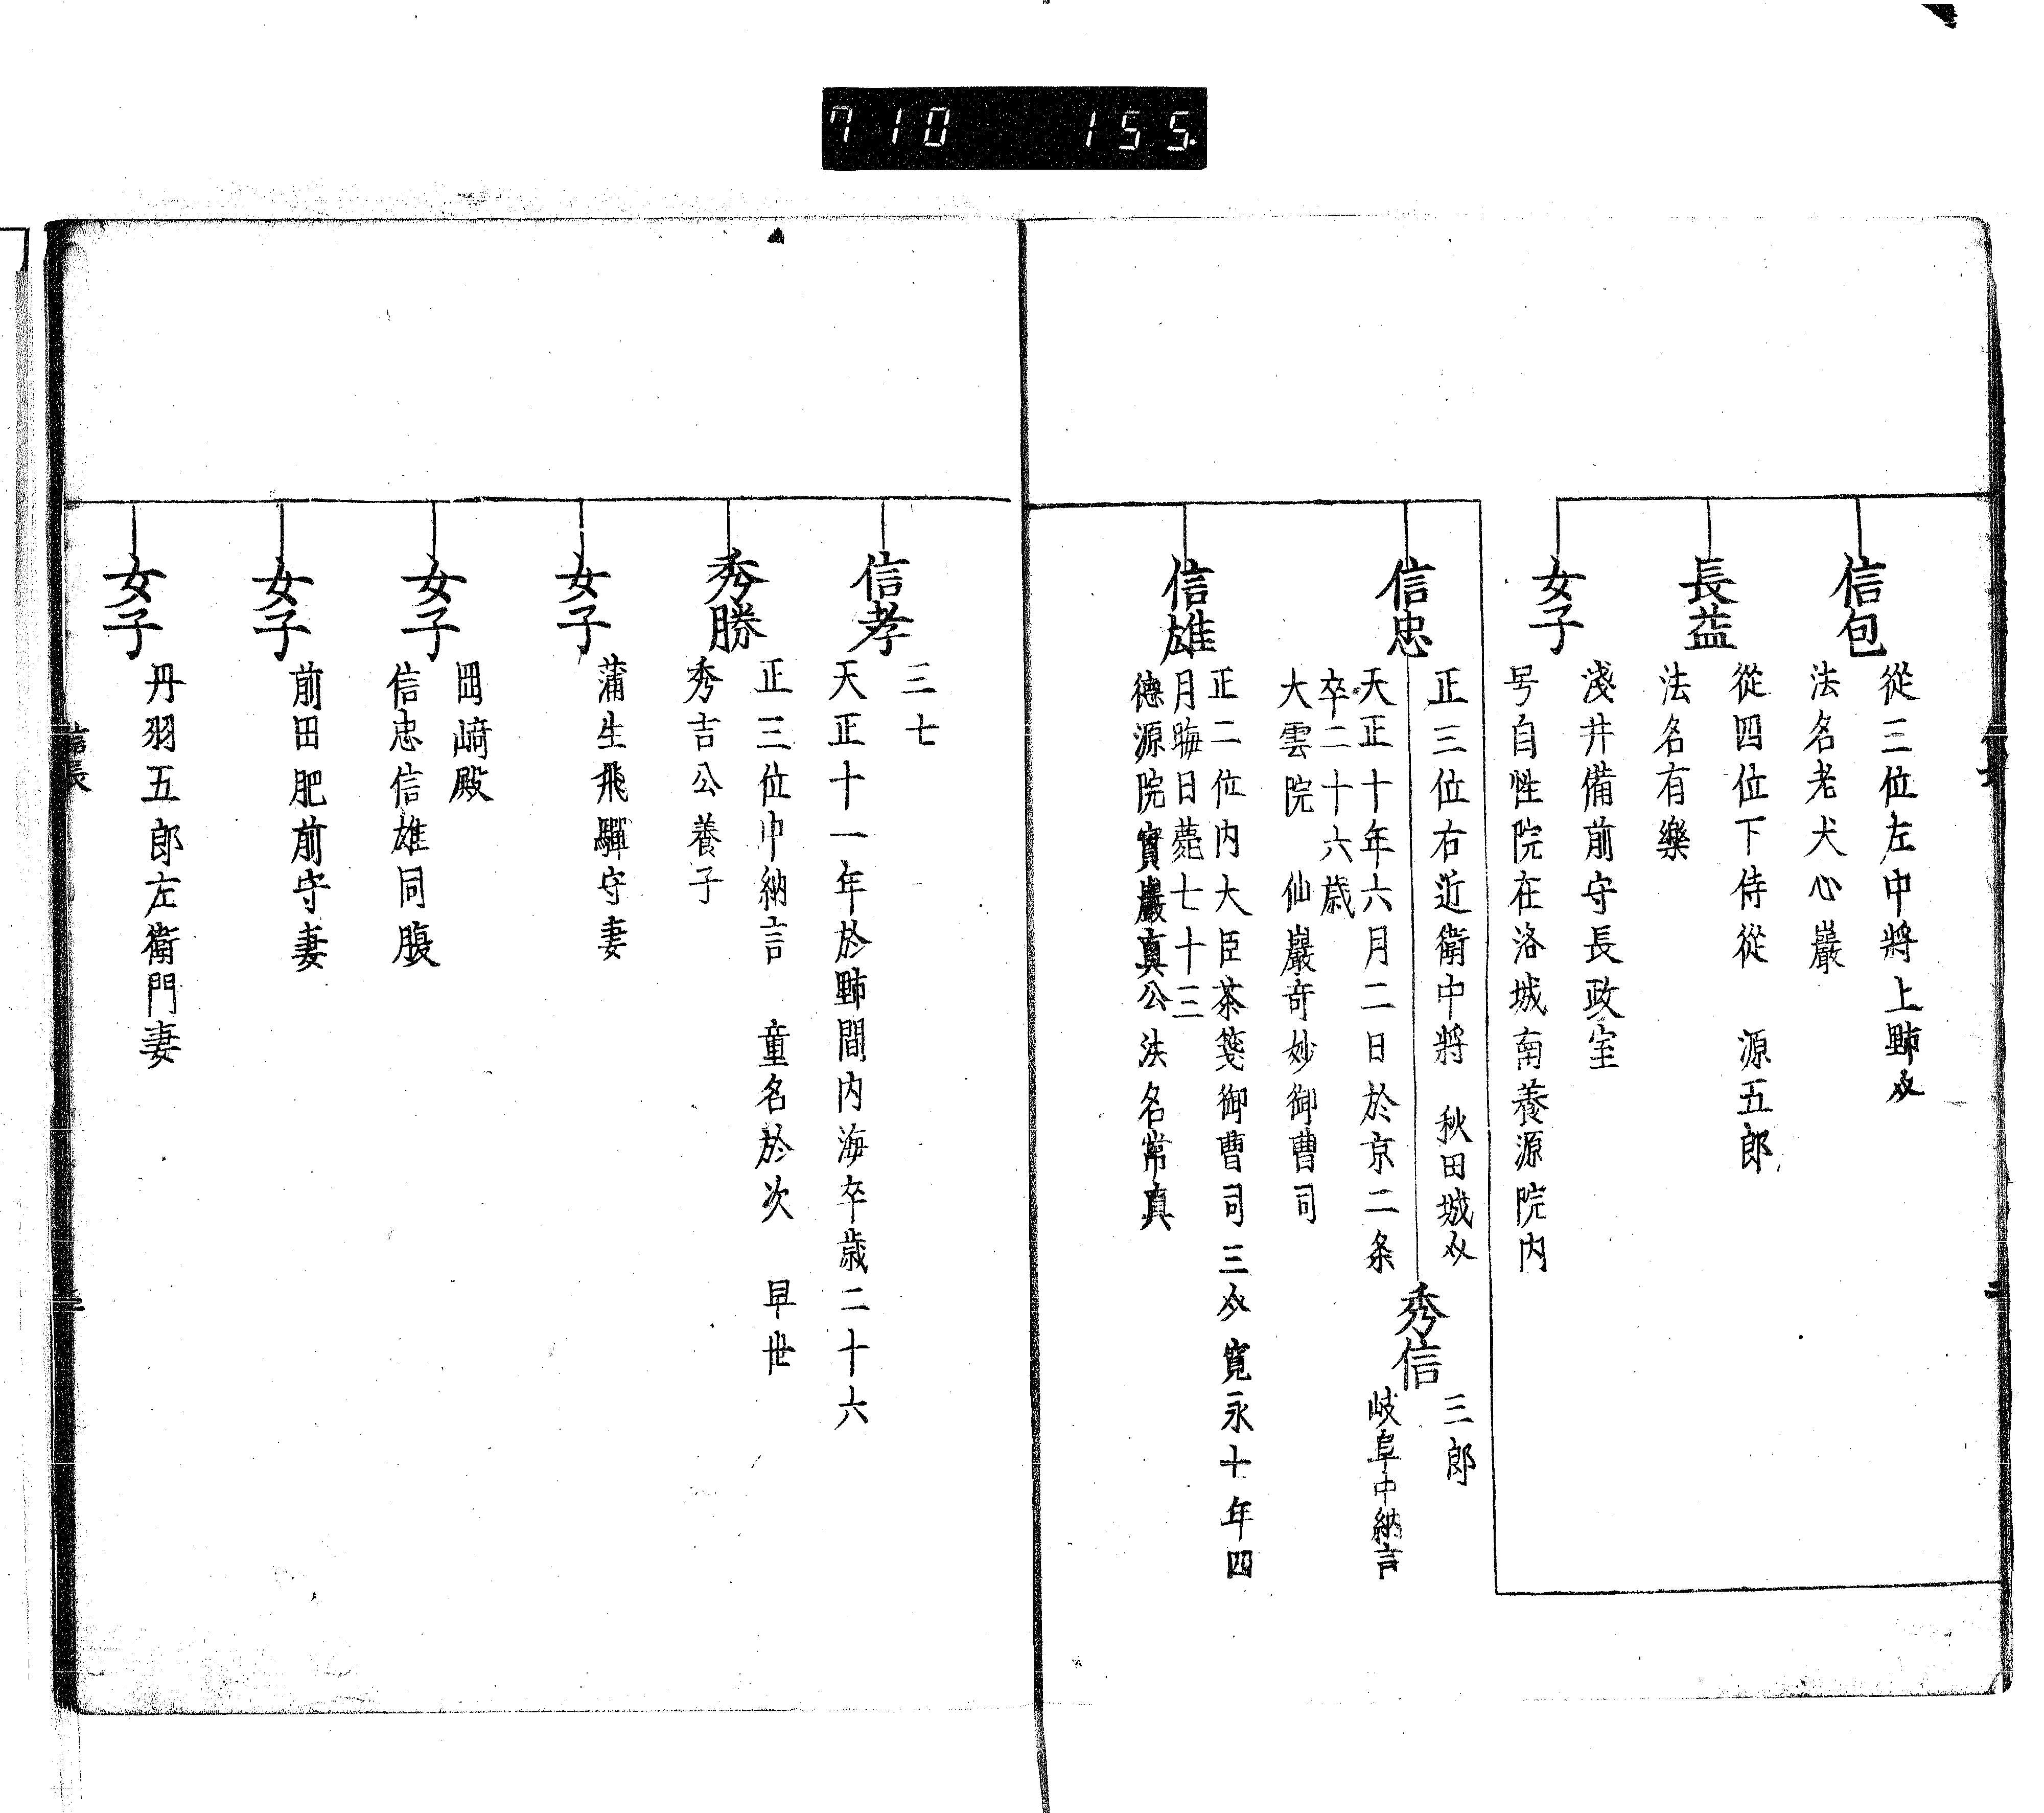 710 155
信包
從三位左中將上野介
法名老犬心巖
長益
從四位下侍從 源五郎
法名有樂
女子
淺井備前守長政室
号自性院在洛城南養源院内
信忠
正三位右近衛中將 秋田城介
天正十年六月二日於京二条
卒二十六歳
大雲院 仙巖奇妙御曹司
秀信
三郎
岐阜中納言
信雄
正二位内大臣茶箋御曹司三介寛永十年四
月晦日薨七十三
德源院實巖真公法名常真
信孝
三七
天正十一年於野間内海卒歳二十六
秀勝
正三位中納言 童名於次 早世
秀吉公養子
女子
蒲生飛驒守妻
女子
岡﨑殿
信忠信雄同腹
女子
前田肥前守妻
女子
丹羽五郎左衛門妻
信長